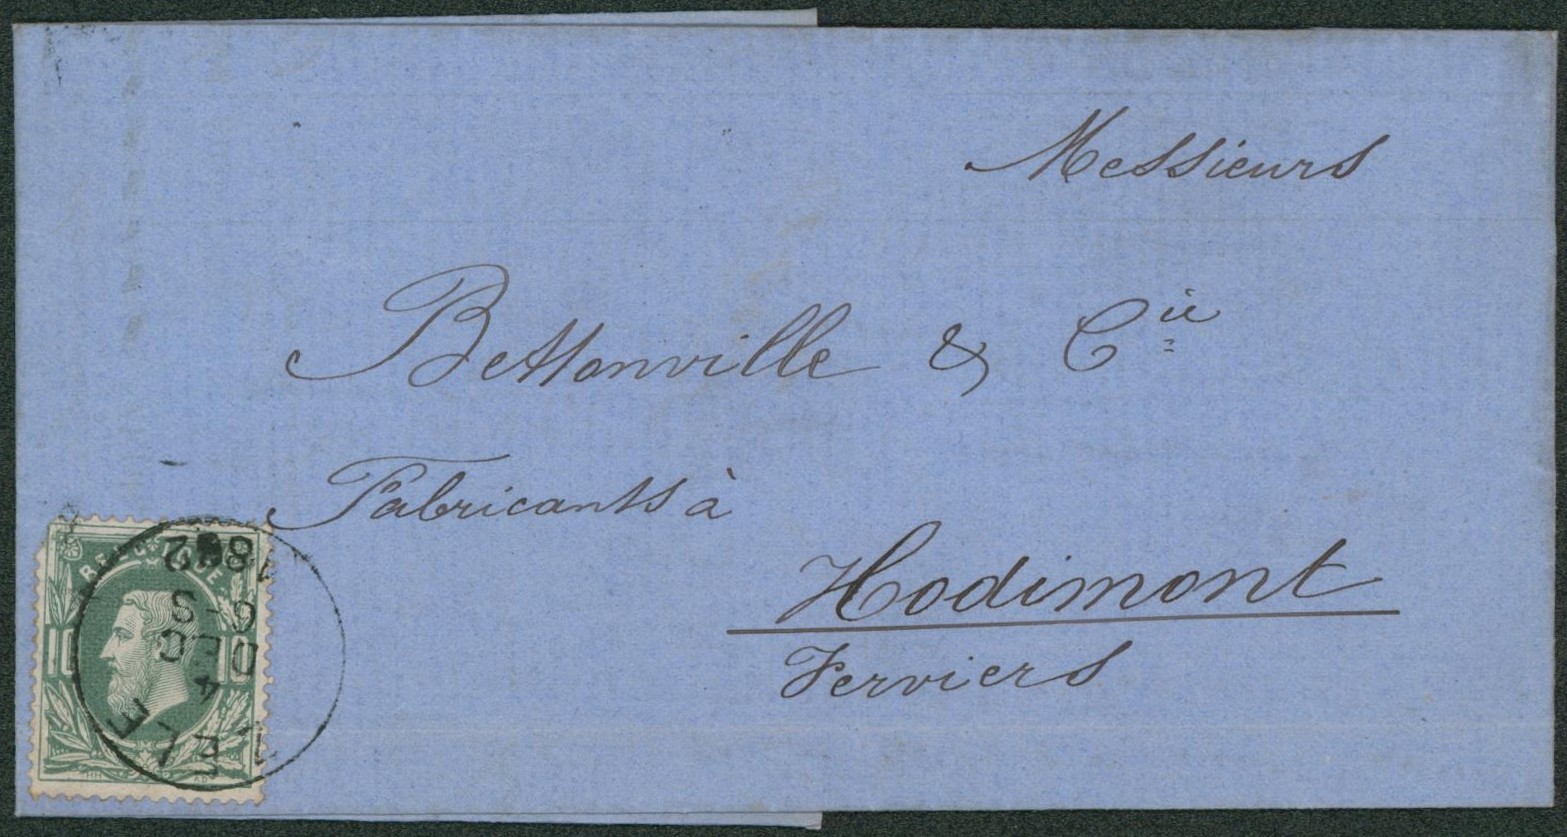 Messieurs
Bettonville & Cie
Fabricants à
Hodimont
Verviers
BELGIQUE
10 10
4
DEC
6-S
1882